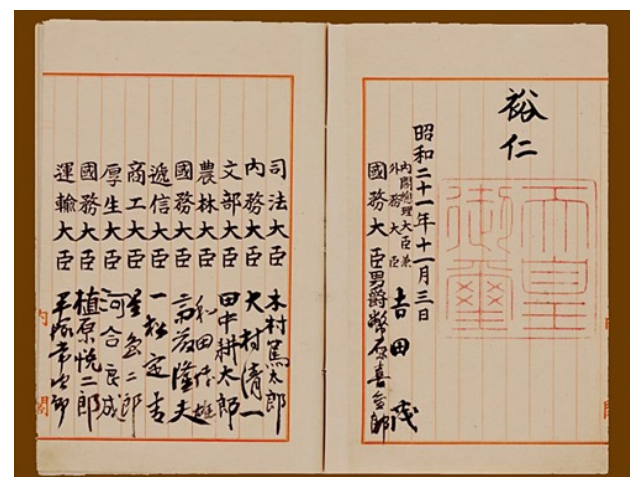 裕仁
天皇
御璽
昭和二十一年十一月三日
内閣總理大臣兼
外務大臣 吉田茂
國務大臣 男爵幣原喜重郎
司法大臣 木村篤太郎
内務大臣 大村清一
文部大臣 田中耕太郎
農林大臣 和田博雄
國務大臣 斎藤隆夫
遞信大臣 一松定吉
商工大臣 星島二郎
厚生大臣 河合良成
國務大臣 植原悦二郎
運輸大臣 平塚常次郎
内閣